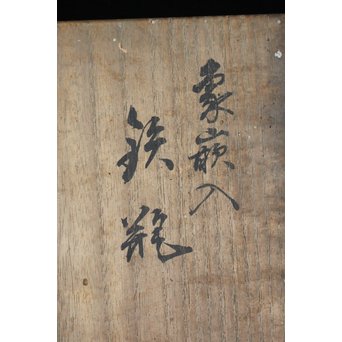 象嵌入
鉄瓶